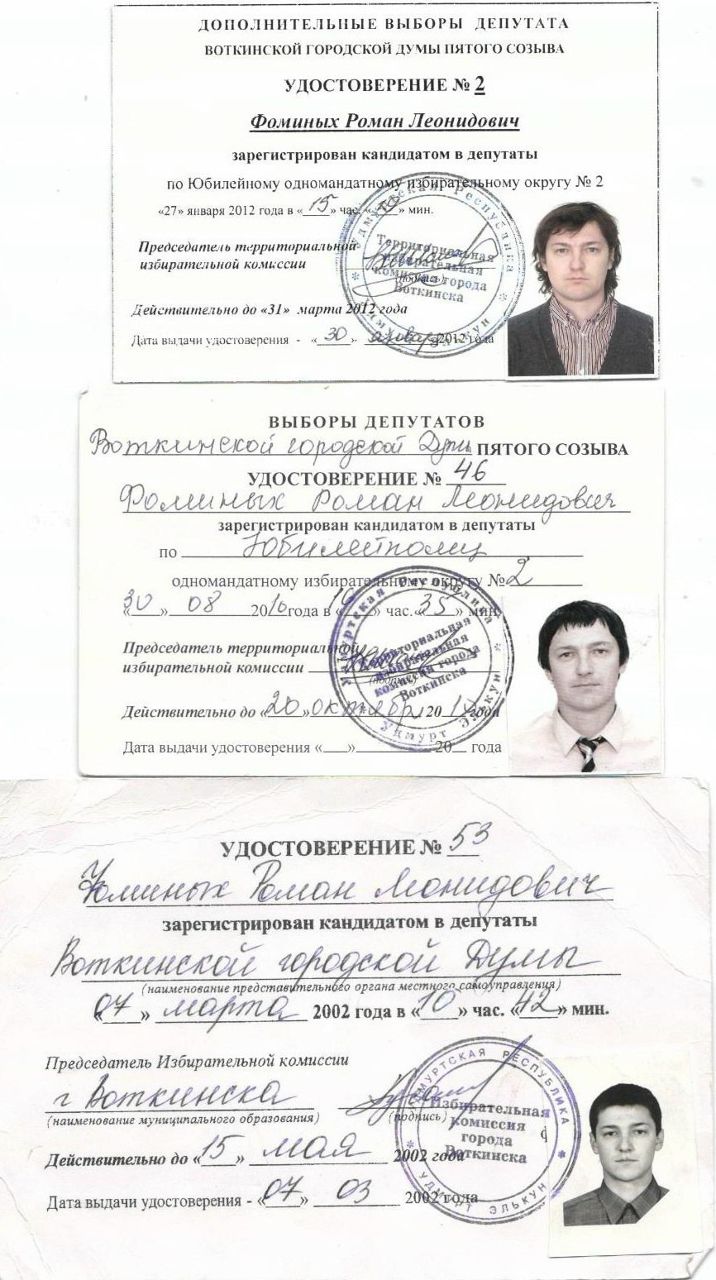 ДОПОЛНИТЕЛЬНЫЕ ВЫБОРЫ ДЕПУТАТА
ВОТКИНСКОЙ ГОРОДСКОЙ ДУМЫ ПЯТОГО СОЗЫВА
УДОСТОВЕРЕНИЕ № 2
Фоминых Роман Леонидович
зарегистрирован кандидатом в депутаты
по Юбилейному одномандатному избирательному округу № 2
«27» января 2012 года в «15» час. «50» мин.
Председатель территориальной
избирательной комиссии
(подпись)
Удмуртская Республика
Территориальная
избирательная
комиссия города
Воткинска
Удмурт Элькун
Действительно до «31» марта 2012 года
Дата выдачи удостоверения - «30» января 2012 года
ВЫБОРЫ ДЕПУТАТОВ
Воткинской городской Думы ПЯТОГО СОЗЫВА
УДОСТОВЕРЕНИЕ № 46
Фоминых Роман Леонидович
зарегистрирован кандидатом в депутаты
по Юбилейному
одномандатному избирательному округу № 2
«30» 08 2010 года в «16» час. «35» мин.
Председатель территориальной
избирательной комиссии
(подпись)
Удмуртская Республика
Территориальная
избирательная
комиссия города
Воткинска
Удмурт Элькун
Действительно до «20» октября 2010 года
Дата выдачи удостоверения «__» ________ 20__ года
УДОСТОВЕРЕНИЕ № 53
Фоминых Роман Леонидович
зарегистрирован кандидатом в депутаты
Воткинской городской Думы
(наименование представительного органа местного самоуправления)
«07» марта 2002 года в «10» час. «42» мин.
Председатель Избирательной комиссии
г Воткинска
(наименование муниципального образования) (подпись)
УДМУРТСКАЯ РЕСПУБЛИКА
Избирательная
комиссия
города
Воткинска
УДМУРТ ЭЛЬКУН
Действительно до «15» мая 2002 года
Дата выдачи удостоверения - «07» 03 2002 года